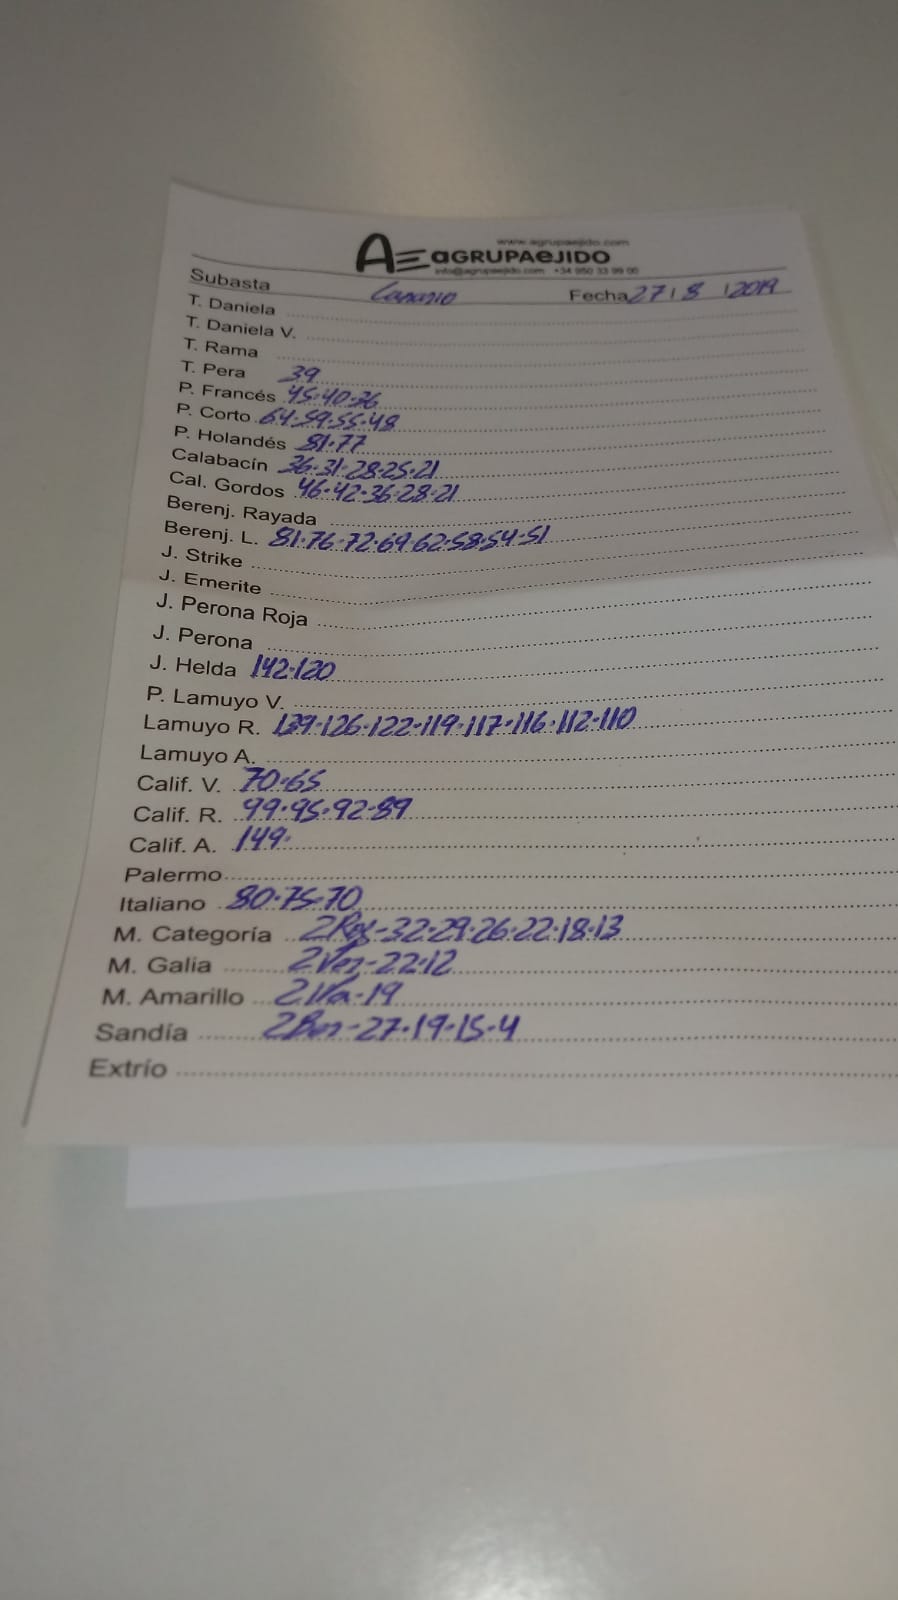 www.agrupaejido.com
AE aGRUPAeJIDO
info@agrupaejido.com +34 950 33 99 00
Subasta Canario Fecha 27 / 8 / 2019
T. Daniela
T. Daniela V.
T. Rama
T. Pera 39
P. Francés 45.40.36
P. Corto 64.59.55.48
P. Holandés 81.77
Calabacín 36.31.28.25.21
Cal. Gordos 46.42.36.28.21
Berenj. Rayada
Berenj. L. 81.76.72.69.62.58.54.51
J. Strike
J. Emerite
J. Perona Roja
J. Perona
J. Helda 142.120
P. Lamuyo V.
Lamuyo R. 139.126.122.119.117.116.112.110
Lamuyo A.
Calif. V. 70.65
Calif. R. 99.95.92.89
Calif. A. 149.
Palermo
Italiano 80.75.70
M. Categoría -32.29.26.22.18.13
M. Galia -22.12
M. Amarillo -19
Sandía -27.19.15.4
Extrío